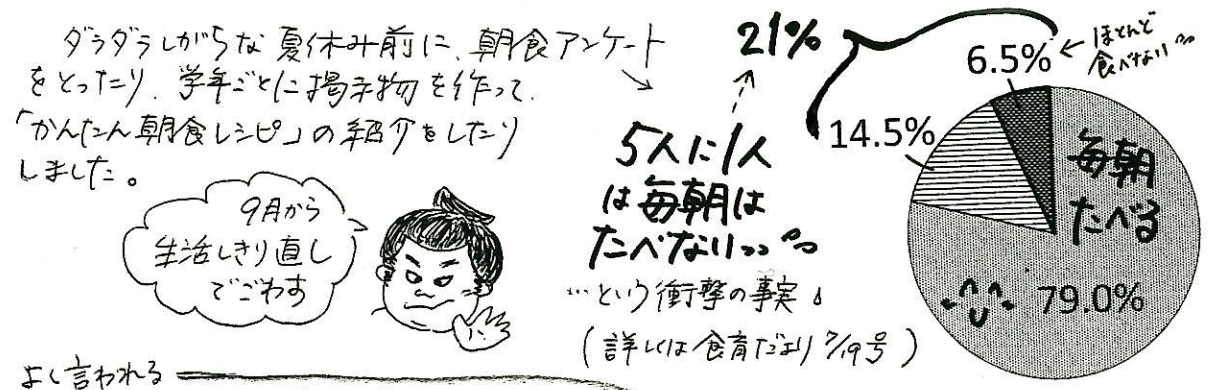 ダラダラしがちな夏休み前に、朝食アンケート
をとったり、学年ごとに掲示物を作って、
「かんたん朝食レシピ」の紹介をしたり
しました。
9月から
生活しきり直し
でごわす
21%
5人に1人
は毎朝は
たべない
…という衝撃の事実
(詳しくは食育だより7/19号)
6.5%
ほとんど
食べない
14.5%
毎朝
たべる
79.0%
よく言われる